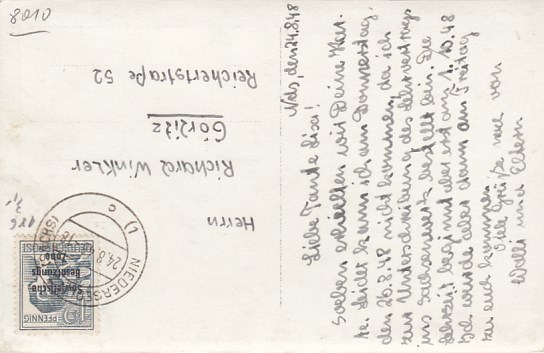 8010
Herrn
Richard Winkler
Görlitz
Reichertstraße 52
Nds, den 24.8.48
Liebe Tante Lisa!
Soeben erhielten wir Deine Kar-
te. Leider kann ich am Donnerstag,
den 26.8.48 nicht kommen, da ich
zur Unterschreibung des Lehrvertrags
ins Sachsenwerk bestellt bin. Die
Lehrzeit beginnt aber erst am 1.10.48
würde aber dann am Freitag
zu euch kommen.
Viele Grüße von
Walli und Eltern
NIEDERSE (SACHS)
24.8.48
c
DEUTSCHE POST
Sowjetische
Besatzungs
Zone
12 PFENNIG